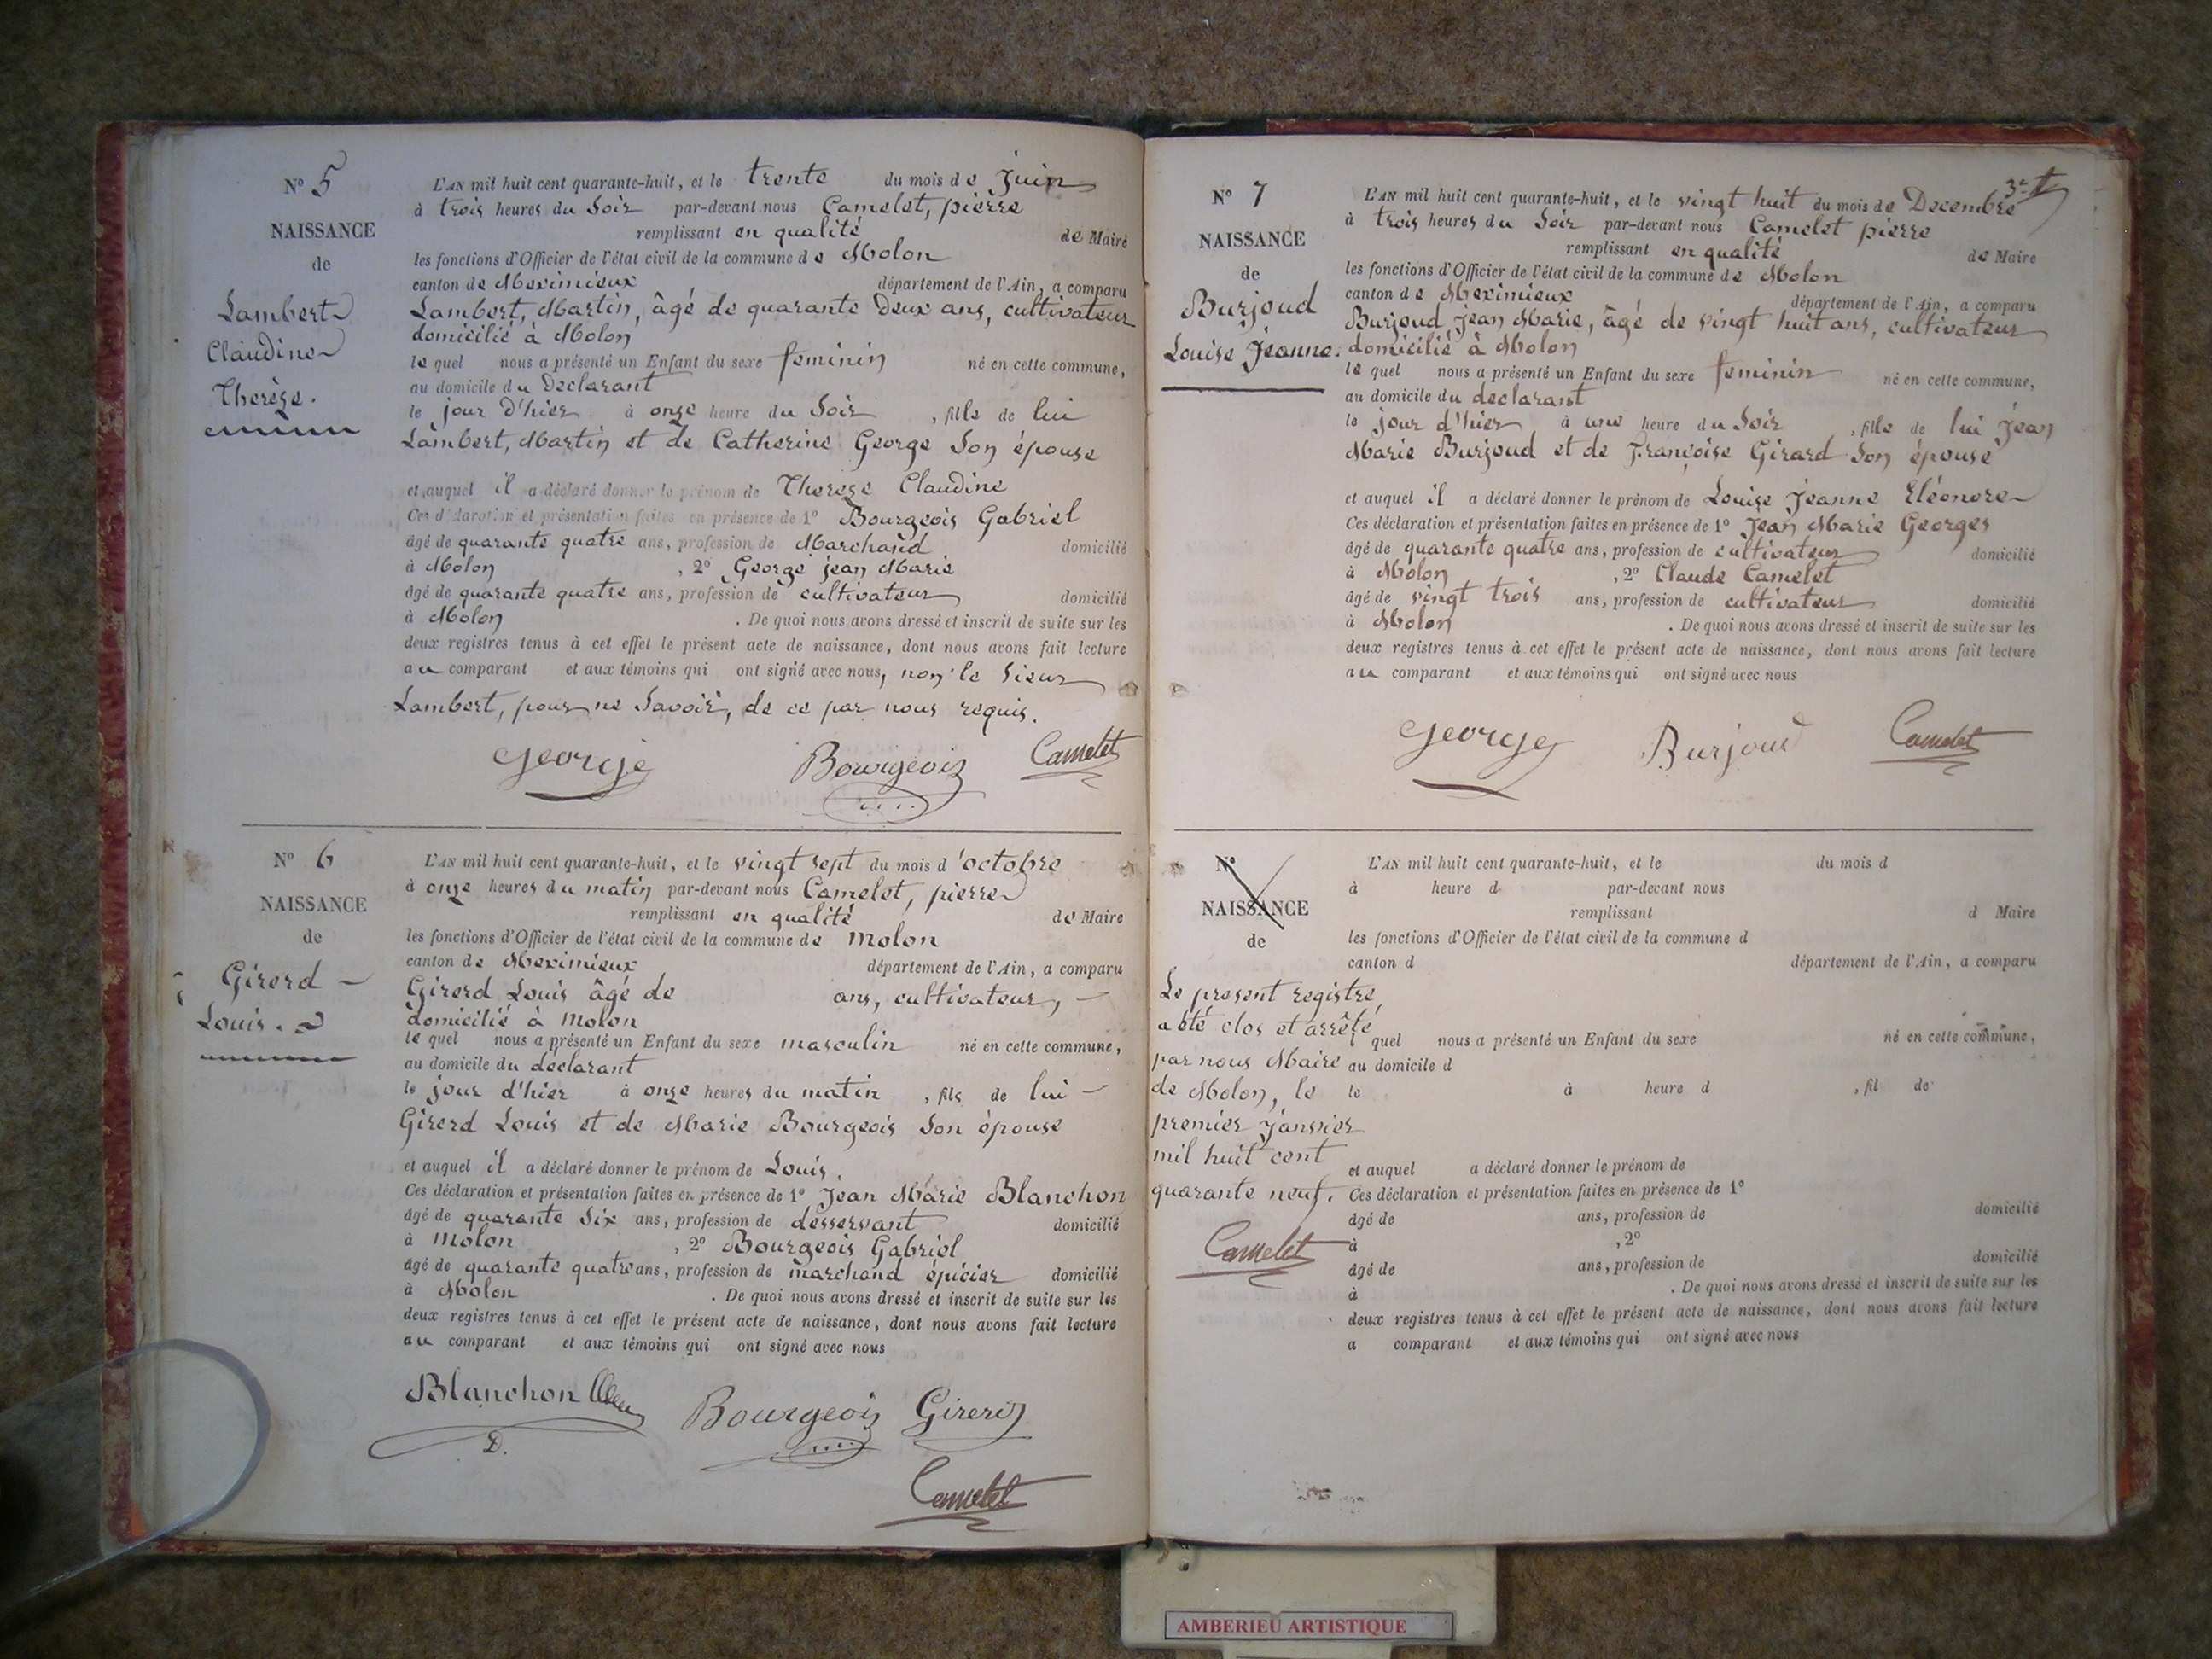 Nº 5
NAISSANCE
de
Lambert
Claudine
Therèse.
L'AN mil huit cent quarante-huit, et le trente du mois de juin
à trois heures du Soir par-devant nous Camelet, pierre
remplissant en qualité de Maire
les fonctions d'Officier de l'état civil de la commune de Molon
canton de Meximieux département de l'Ain, a comparu
Lambert, Martin, âgé de quarante Deux ans, cultivateur
domicilié à Molon
le quel nous a présenté un Enfant du sexe feminin né en cette commune,
au domicile du Declarant
le jour d'hier à onze heure du Soir , fille de lui
Lambert, Martin et de Catherine George Son épouse
et auquel il a déclaré donner le prénom de Thereze Claudine
Ces déclaration et présentation faites en présence de 1º Bourgeois Gabriel
âgé de quarante quatre ans, profession de Marchand domicilié
à Molon , 2º George jean Marie
âgé de quarante quatre ans, profession de cultivateur domicilié
à Molon . De quoi nous avons dressé et inscrit de suite sur les
deux registres tenus à cet effet le présent acte de naissance, dont nous avons fait lecture
au comparant et aux témoins qui ont signé avec nous, non le Sieur
Lambert, pour ne Savoir, de ce par nous requis.
George Bourgeois Camelet
Nº 6
NAISSANCE
de
Girerd
Louis.
L'AN mil huit cent quarante-huit, et le vingt sept du mois d'octobre
à onze heures du matin par-devant nous Camelet, pierre
remplissant en qualité de Maire
les fonctions d'Officier de l'état civil de la commune de Molon
canton de Meximieux département de l'Ain, a comparu
Girerd Louis âgé de ans, cultivateur,
domicilié à Molon
le quel nous a présenté un Enfant du sexe masculin né en cette commune,
au domicile du déclarant
le jour d'hier à onze heures du matin , fils de lui
Girerd Louis et de Marie Bourgeois Son épouse
et auquel il a déclaré donner le prénom de Louis.
Ces déclaration et présentation faites en présence de 1º Jean Marie Blanchon
âgé de quarante Six ans, profession de desservant domicilié
à Molon , 2º Bourgeois Gabriel
âgé de quarante quatre ans, profession de marchand épicier domicilié
à Molon . De quoi nous avons dressé et inscrit de suite sur les
deux registres tenus à cet effet le présent acte de naissance, dont nous avons fait lecture
au comparant et aux témoins qui ont signé avec nous
Blanchon Bourgeois Girerd
D.
Camelet
Nº 7
NAISSANCE
de
Burjoud
Louise Jeanne.
L'AN mil huit cent quarante-huit, et le vingt huit du mois de Decembre
à trois heures du Soir par-devant nous Camelet pierre
remplissant en qualité de Maire
les fonctions d'Officier de l'état civil de la commune de Molon
canton de Meximieux département de l'Ain, a comparu
Burjoud, jean Marie, âgé de vingt huit ans, cultivateur
domicilié à Molon
le quel nous a présenté un Enfant du sexe feminin né en cette commune,
au domicile du declarant
le jour d'hier à une heure du Soir , fille de lui jean
Marie Burjoud et de françoise Girard Son épouse
et auquel il a déclaré donner le prénom de Louise Jeanne Eléonore
Ces déclaration et présentation faites en présence de 1º Jean Marie Georges
âgé de quarante quatre ans, profession de cultivateur domicilié
à Molon , 2º Claude Camelet
âgé de vingt trois ans, profession de cultivateur domicilié
à Molon . De quoi nous avons dressé et inscrit de suite sur les
deux registres tenus à cet effet le présent acte de naissance, dont nous avons fait lecture
au comparant et aux témoins qui ont signé avec nous
George Burjoud Camelet
Nº
NAISSANCE
de
Le present registre
a été clos et arrêté
par nous Maire
de Molon, le
premier janvier
mil huit cent
quarante neuf.
Camelet
L'AN mil huit cent quarante-huit, et le du mois d
à heure d par-devant nous
remplissant d Maire
les fonctions d'Officier de l'état civil de la commune d
canton d département de l'Ain, a comparu
l quel nous a présenté un Enfant du sexe né en cette commune,
au domicile d
le à heure d , fil de
et auquel a déclaré donner le prénom de
Ces déclaration et présentation faites en présence de 1º
âgé de ans, profession de domicilié
à , 2º
âgé de ans, profession de domicilié
à . De quoi nous avons dressé et inscrit de suite sur les
deux registres tenus à cet effet le présent acte de naissance, dont nous avons fait lecture
a comparant et aux témoins qui ont signé avec nous
AMBERIEU ARTISTIQUE